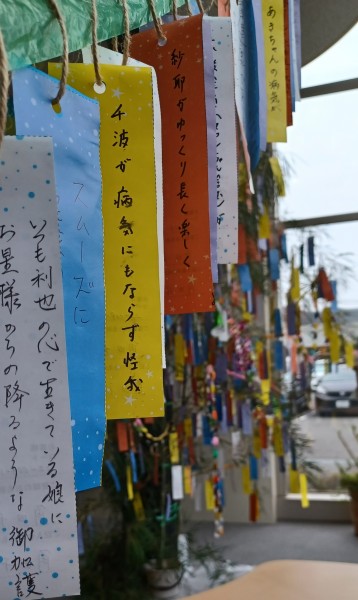 あきちゃんの病気が
紗耶がゆっくり長く楽しく
千波が病気にもならず怪我
スムーズに
いつも利也の心で生きている娘に
お星様からの降るような御加護